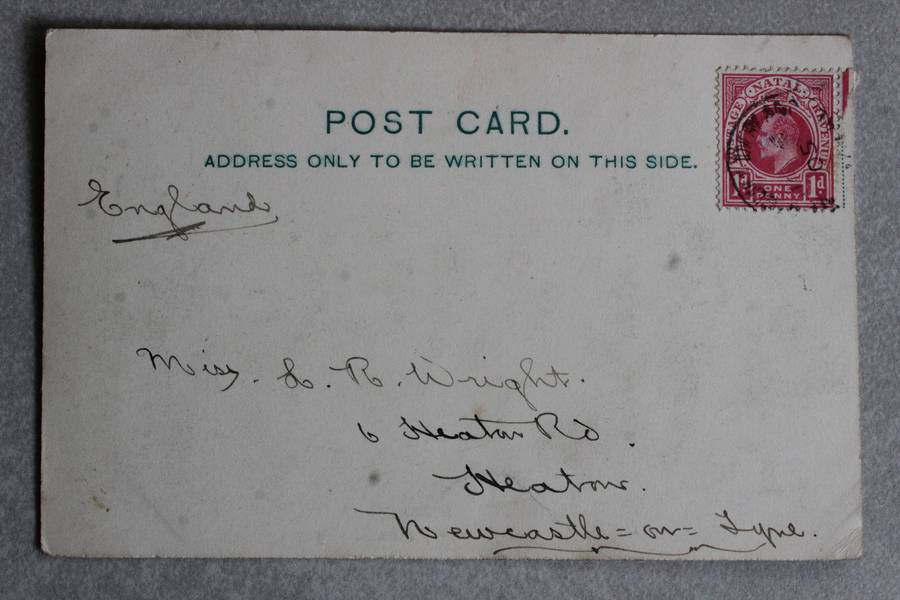 POST CARD.
ADDRESS ONLY TO BE WRITTEN ON THIS SIDE.
POSTAGE NATAL REVENUE
1d ONE PENNY 1d
England
Miss. L. R. Wright.
6 Heaton Rd.
Heaton.
Newcastle=on=Tyne.